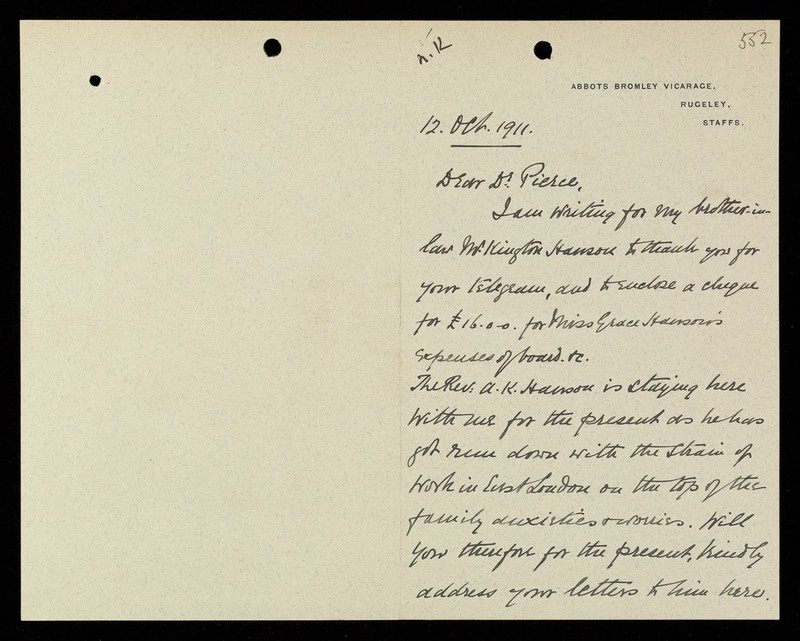 552
A.K
ABBOTS BROMLEY VICARAGE,
RUGELEY,
STAFFS.
12. Oct. 1911.
Dear Dr. Pierce,
I am writing for my brother-in-
law Mr. Kington Hawson to thank you for
your telegram, and to enclose a cheque
for £16.0-0. for Miss Grace Hawson's
expenses of board. &c.
The Rev: A. K. Hawson is staying here
with me for the present as he has
got run down with the strain of
work in East London on the top of the
family anxieties & worries. Will
you therefore for the present, kindly
address your letters to him here.